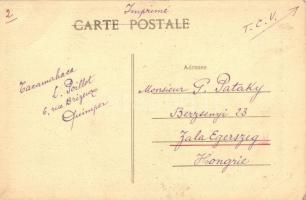 2
Imprimé
CARTE POSTALE
T.C.V.
Tacamahaca
L. Poillot
6, rue Brizeux
Quimper
Adresse
Monsieur G. Pataky
Berzsenyi 23
Zala Egerszeg
Hongrie